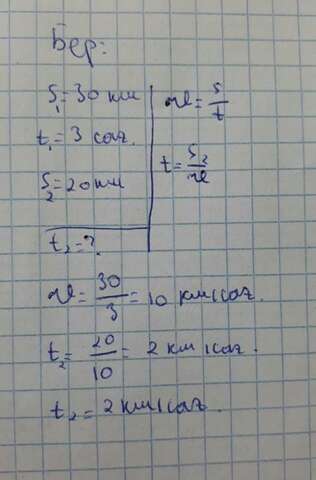 Бер:
S₁=30 км
t₁=3 сағ.
S₂=20км
t₂=?
υ=S/t
t=S₂/υ
υ=30/3=10 км/сағ.
t₂=20/10=2 км/сағ.
t₂=2км/сағ.